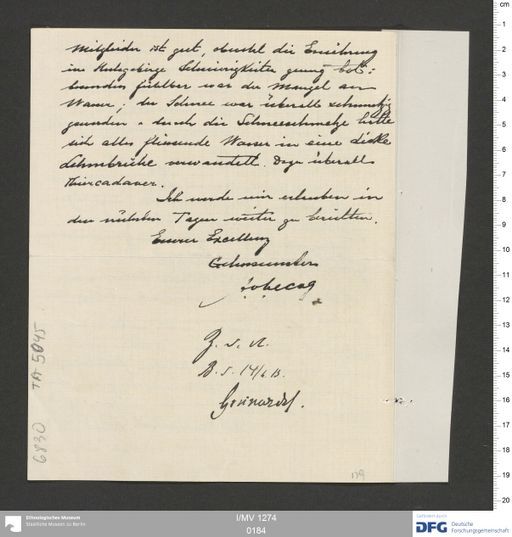 Mitglieder ist gut, obwohl die Ernährung
im Kutzgebirge Schwierigkeiten genug bot:
besonders fühlbar war der Mangel an
Wasser; der Schnee war überall schmutzig
geworden u. durch die Schneeschmelze hatte
sich alles fliessende Wasser in eine dicke
Lehmbrühe verwandelt. Dazu überall
Thiercadaver.
Ich werde mir erlauben in
den nächsten Tagen weiter zu berichten.
Eurer Excellenz
Gehorsamster
Z. d. A.
B. d. 14/6 13.
TA 5045
6830
179
Ethnologisches Museum
Staatliche Museen zu Berlin
I/MV 1274
0184
Gefördert durch
DFG Deutsche
Forschungsgemeinschaft
cm
1
2
3
4
5
6
7
8
9
10
11
12
13
14
15
16
17
18
19
20